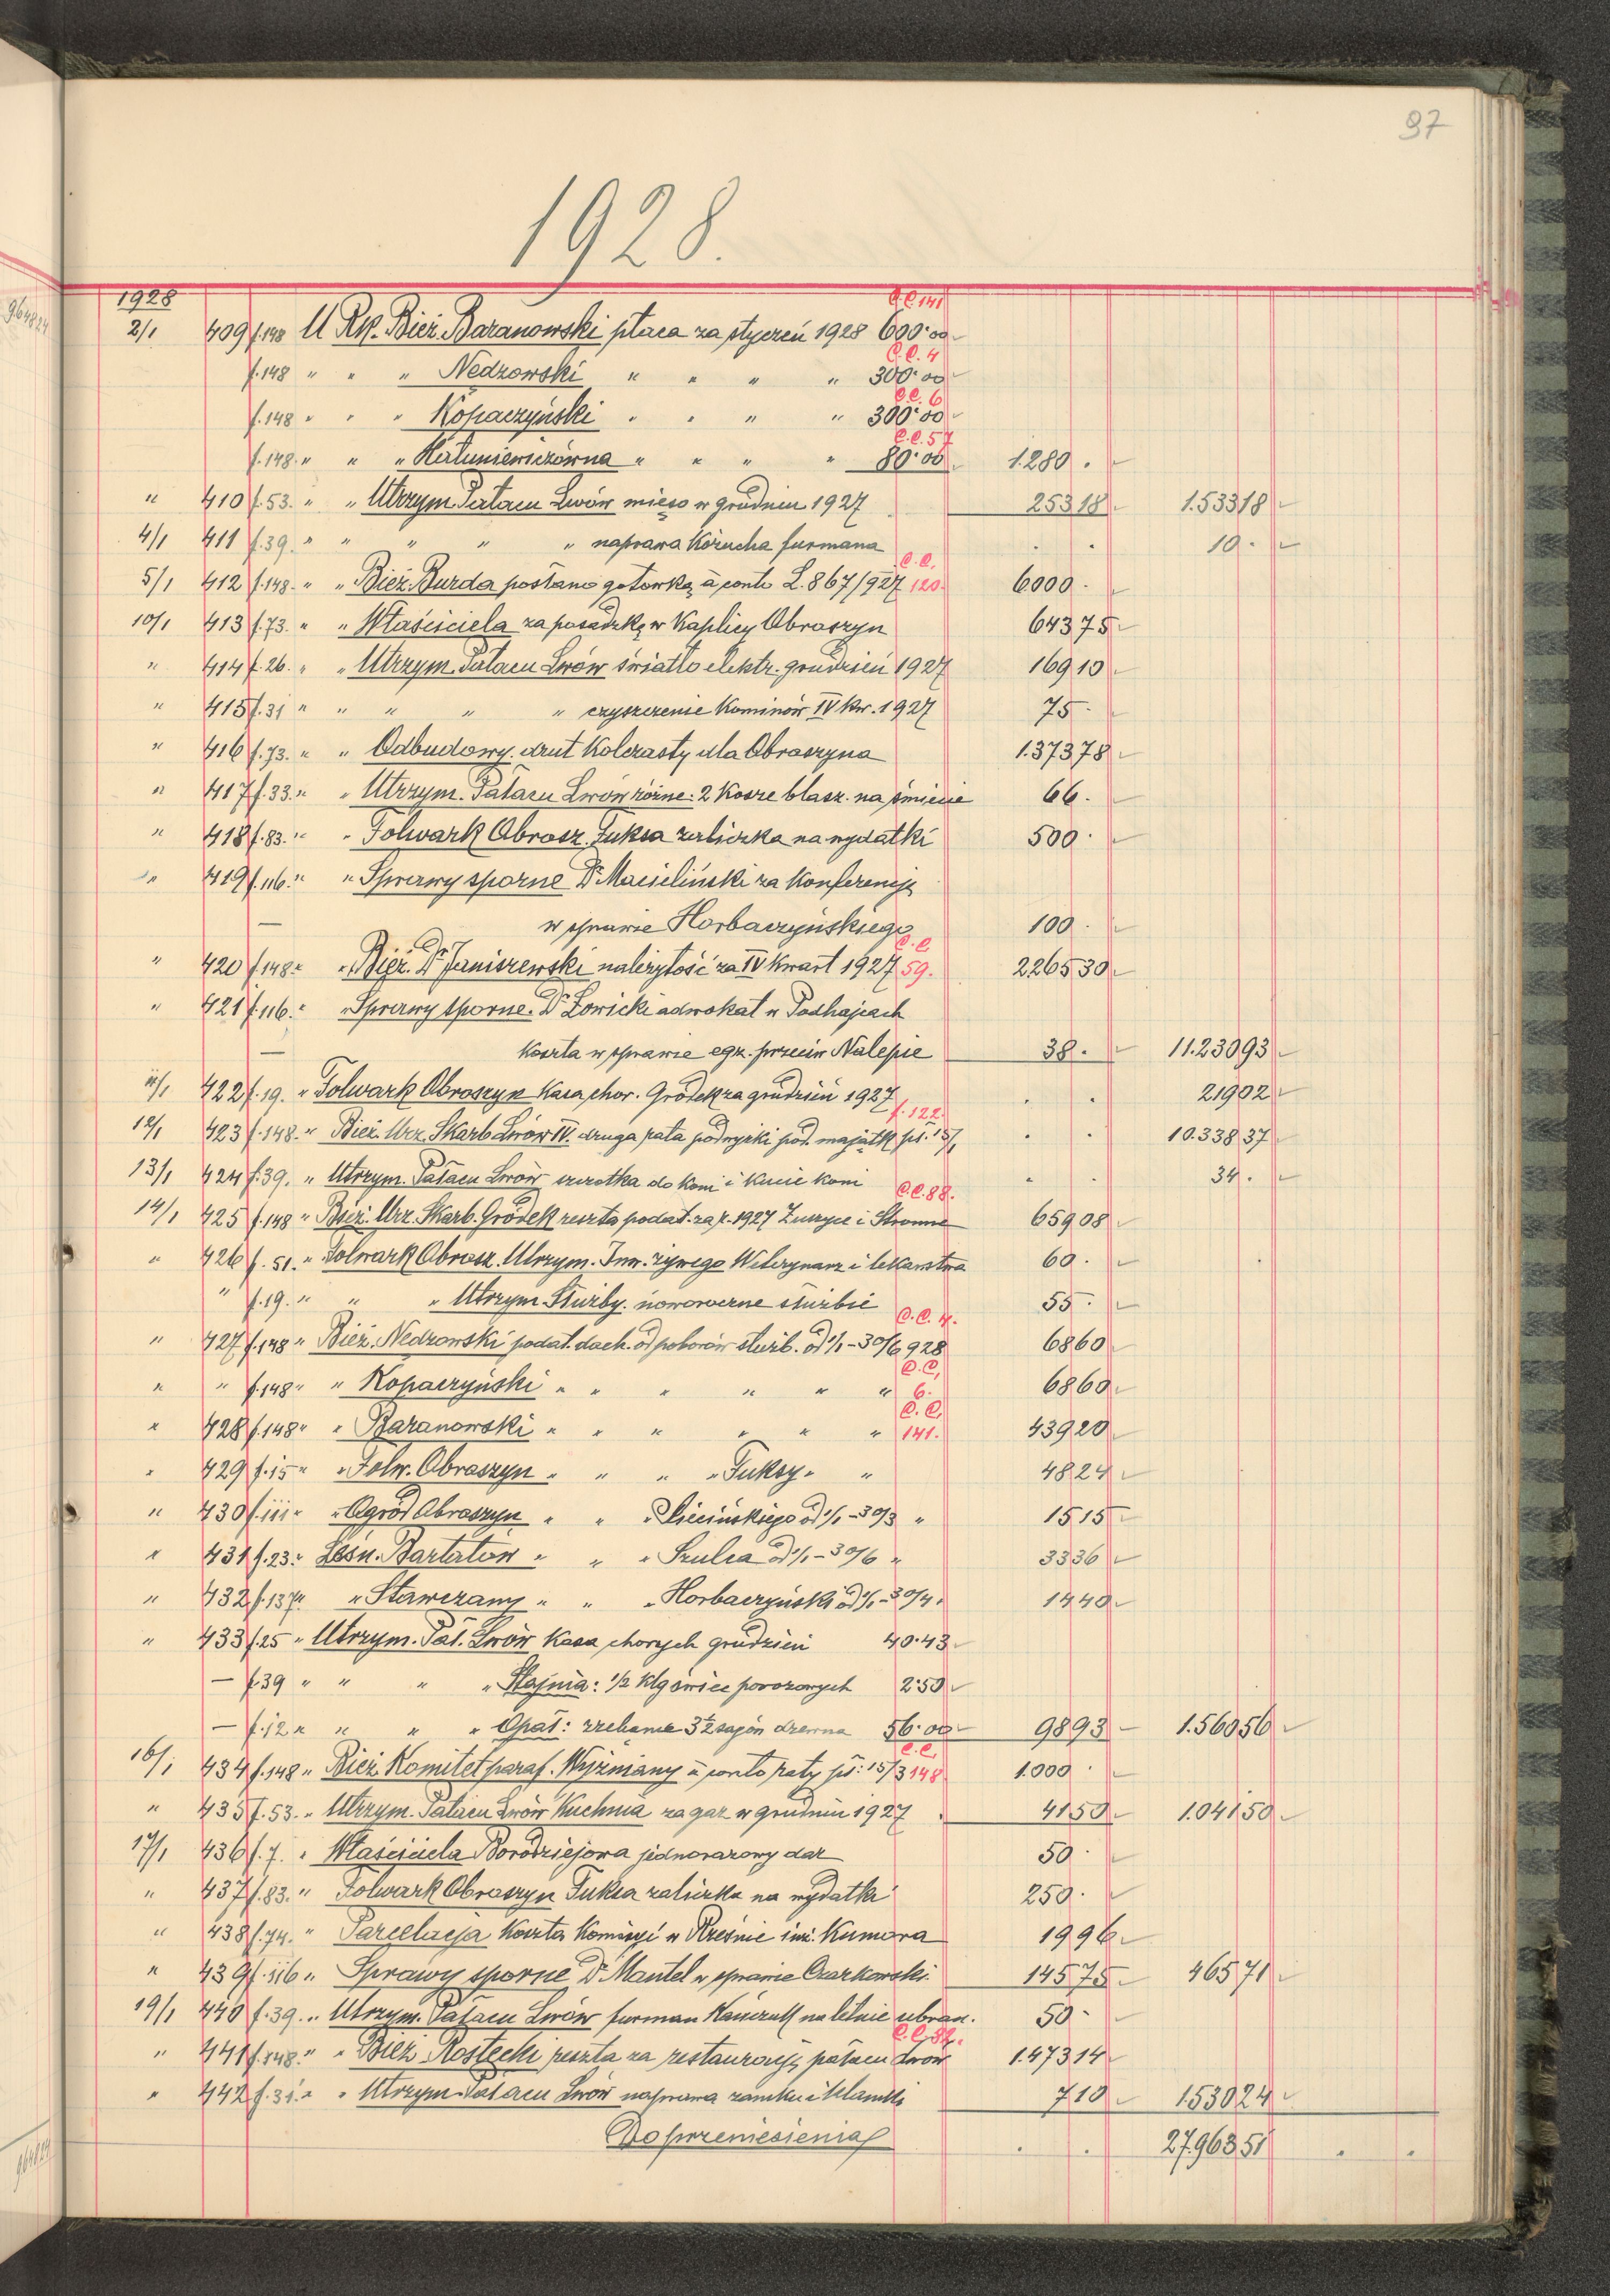 97
1928.
1928 C.C. 141
2/1 409 f.148 U Rk. Bież. Baranowski płaca za styczeń 1928 600·00
C.C. 4
f.148 " " " Nedzowski " " " " 300·00
C.C. 6
f.148 " " " Kopaczyński " " " " 300·00
C.C. 57
f.148 " " " " " " " 80·00 1.280 .
" 410 f.53. " " Utrzym. Pałacu Lwów mięso w grudniu 1927 253 18 1.533 18
4/1 411 f.39. " " " " " naprawa kożucha furmana . . 10 .
C.C.
5/1 412 f.148. " " Bież. Burda posłano gotówką à conto L. 867/927 120. 6000 .
10/1 413 f.73. " " Właściciela za posadzkę w Kaplicy Obroszyn 643 75
" 414 f.26. " " Utrzym. Pałacu Lwów światło elektr. grudzień 1927 169 10
" 415 f.31 " " " " " czyszczenie kominów IV kw. 1927 75 .
" 416 f.73. " " Odbudowy. drut kolczasty dla Obroszyna 1.373 78
" 417 f.33. " " Utrzym. Pałacu Lwów różne: 2 kosze blasz. na śmiecie 66 .
" 418 f.83. " " Folwark Obrosz. Fuksa zaliczka na wydatki 500 .
" 419 f.116. " " Sprawy sporne Dr Macieliński za konferencję
— w sprawie Horbaczyńskiego 100 .
C.C.
" 420 f.148. " " Bież. Dr Janiszewski należytość za IV kwart 1927 59. 2265 30
" 421 f.116. " " Sprawy sporne. Dr Łowicki adwokat w Podhajcach
— koszta w sprawie egz. przeciw Nalepie 38 . 11.230 93
11/1 422 f.19. " Folwark Obroszyn Kasa chor. Gródek za grudzień 1927 . . 219 02
f. 122.
12/1 423 f.148. " Bież. Urz. Skarb. Lwów IV. druga rata podwyżki pod. majątk. pł. 15/1 . . 10.338 37
13/1 424 f.39. " Utrzym. Pałacu Lwów szczotka do koni i kucie koni . . 34 .
C.C. 88.
14/1 425 f.148 " Bież. Urz. Skarb. Gródek reszta podat. za r. 1927 Zuszyce i Stronne 659 08
" 426 f.51. " Folwark Obrosz. Utrzym. Inw. żywego Weterynarz i lekarstwa 60 .
" f.19. " " " Utrzym. Służby. noworoczne służbie 55 .
C.C. 4.
" 427 f.148 " Bież. Nedzowski podat. doch. od poborów służb. od 1/1 - 30/6 928 68 60
C.C.
" " f.148 " " Kopaczyński " " " " " " 6. 68 60
C.C.
" 428 f.148 " " Baranowski " " " " " " 141. 439 20
" 429 f.15 " " Folw. Obroszyn " " " " Fuksy " " 48 24
" 430 f.111 " " Ogród Obroszyn " " " od 1/1 - 30/3 " 15 15
" 431 f.23. " Leśn. Bartatów " " " Szulca od 1/1 - 30/6 " 33 36
" 432 f.137 " " Stawczany " " " Horbaczyński od 1/1 - 30/4 " 14 40
" 433 f.25 " Utrzym. Pał. Lwów Kasa chorych grudzień 40·43
— f.39 " " " " Stajnia: 1/2 klg świec powozowych 2·50
— f.12 " " " " Opał: zrzekanie 3 1/2 sagón drzewna 56·00 98 93 1.560 56
C.C.
16/1 434 f.148 " Bież. Komitet paraf. Wyżniany à conto raty pł: 15/3 148 1.000 .
" 435 f.53. " Utrzym. Pałacu Lwów Kuchnia za gaz w grudniu 1927 41 50 1.041 50
17/1 436 f.7. " Właściciela Borodziejowa jednorazowy dar 50 .
" 437 f.83. " Folwark Obroszyn Fuksa zaliczka na wydatki 250 .
" 438 f.74. " Parcelacja Koszta Komisyi w Rześnie inż. Kumora 19 96
" 439 f.116 " Sprawy sporne Dr Mantel w sprawie Czarkowski. 145 75 465 71
19/1 440 f.39. " Utrzym. Pałacu Lwów furman na letnie ubran. 50 .
C.C. 82.
" 441 f.148. " " Bież Rostecki reszta za restaurację pałacu Lwów 1.473 14
" 442 f.31. " " Utrzym. Pałacu Lwów naprawa zamku i klamki 7 10 1.530 24
Do przeniesienia . . 27.963 51 . .